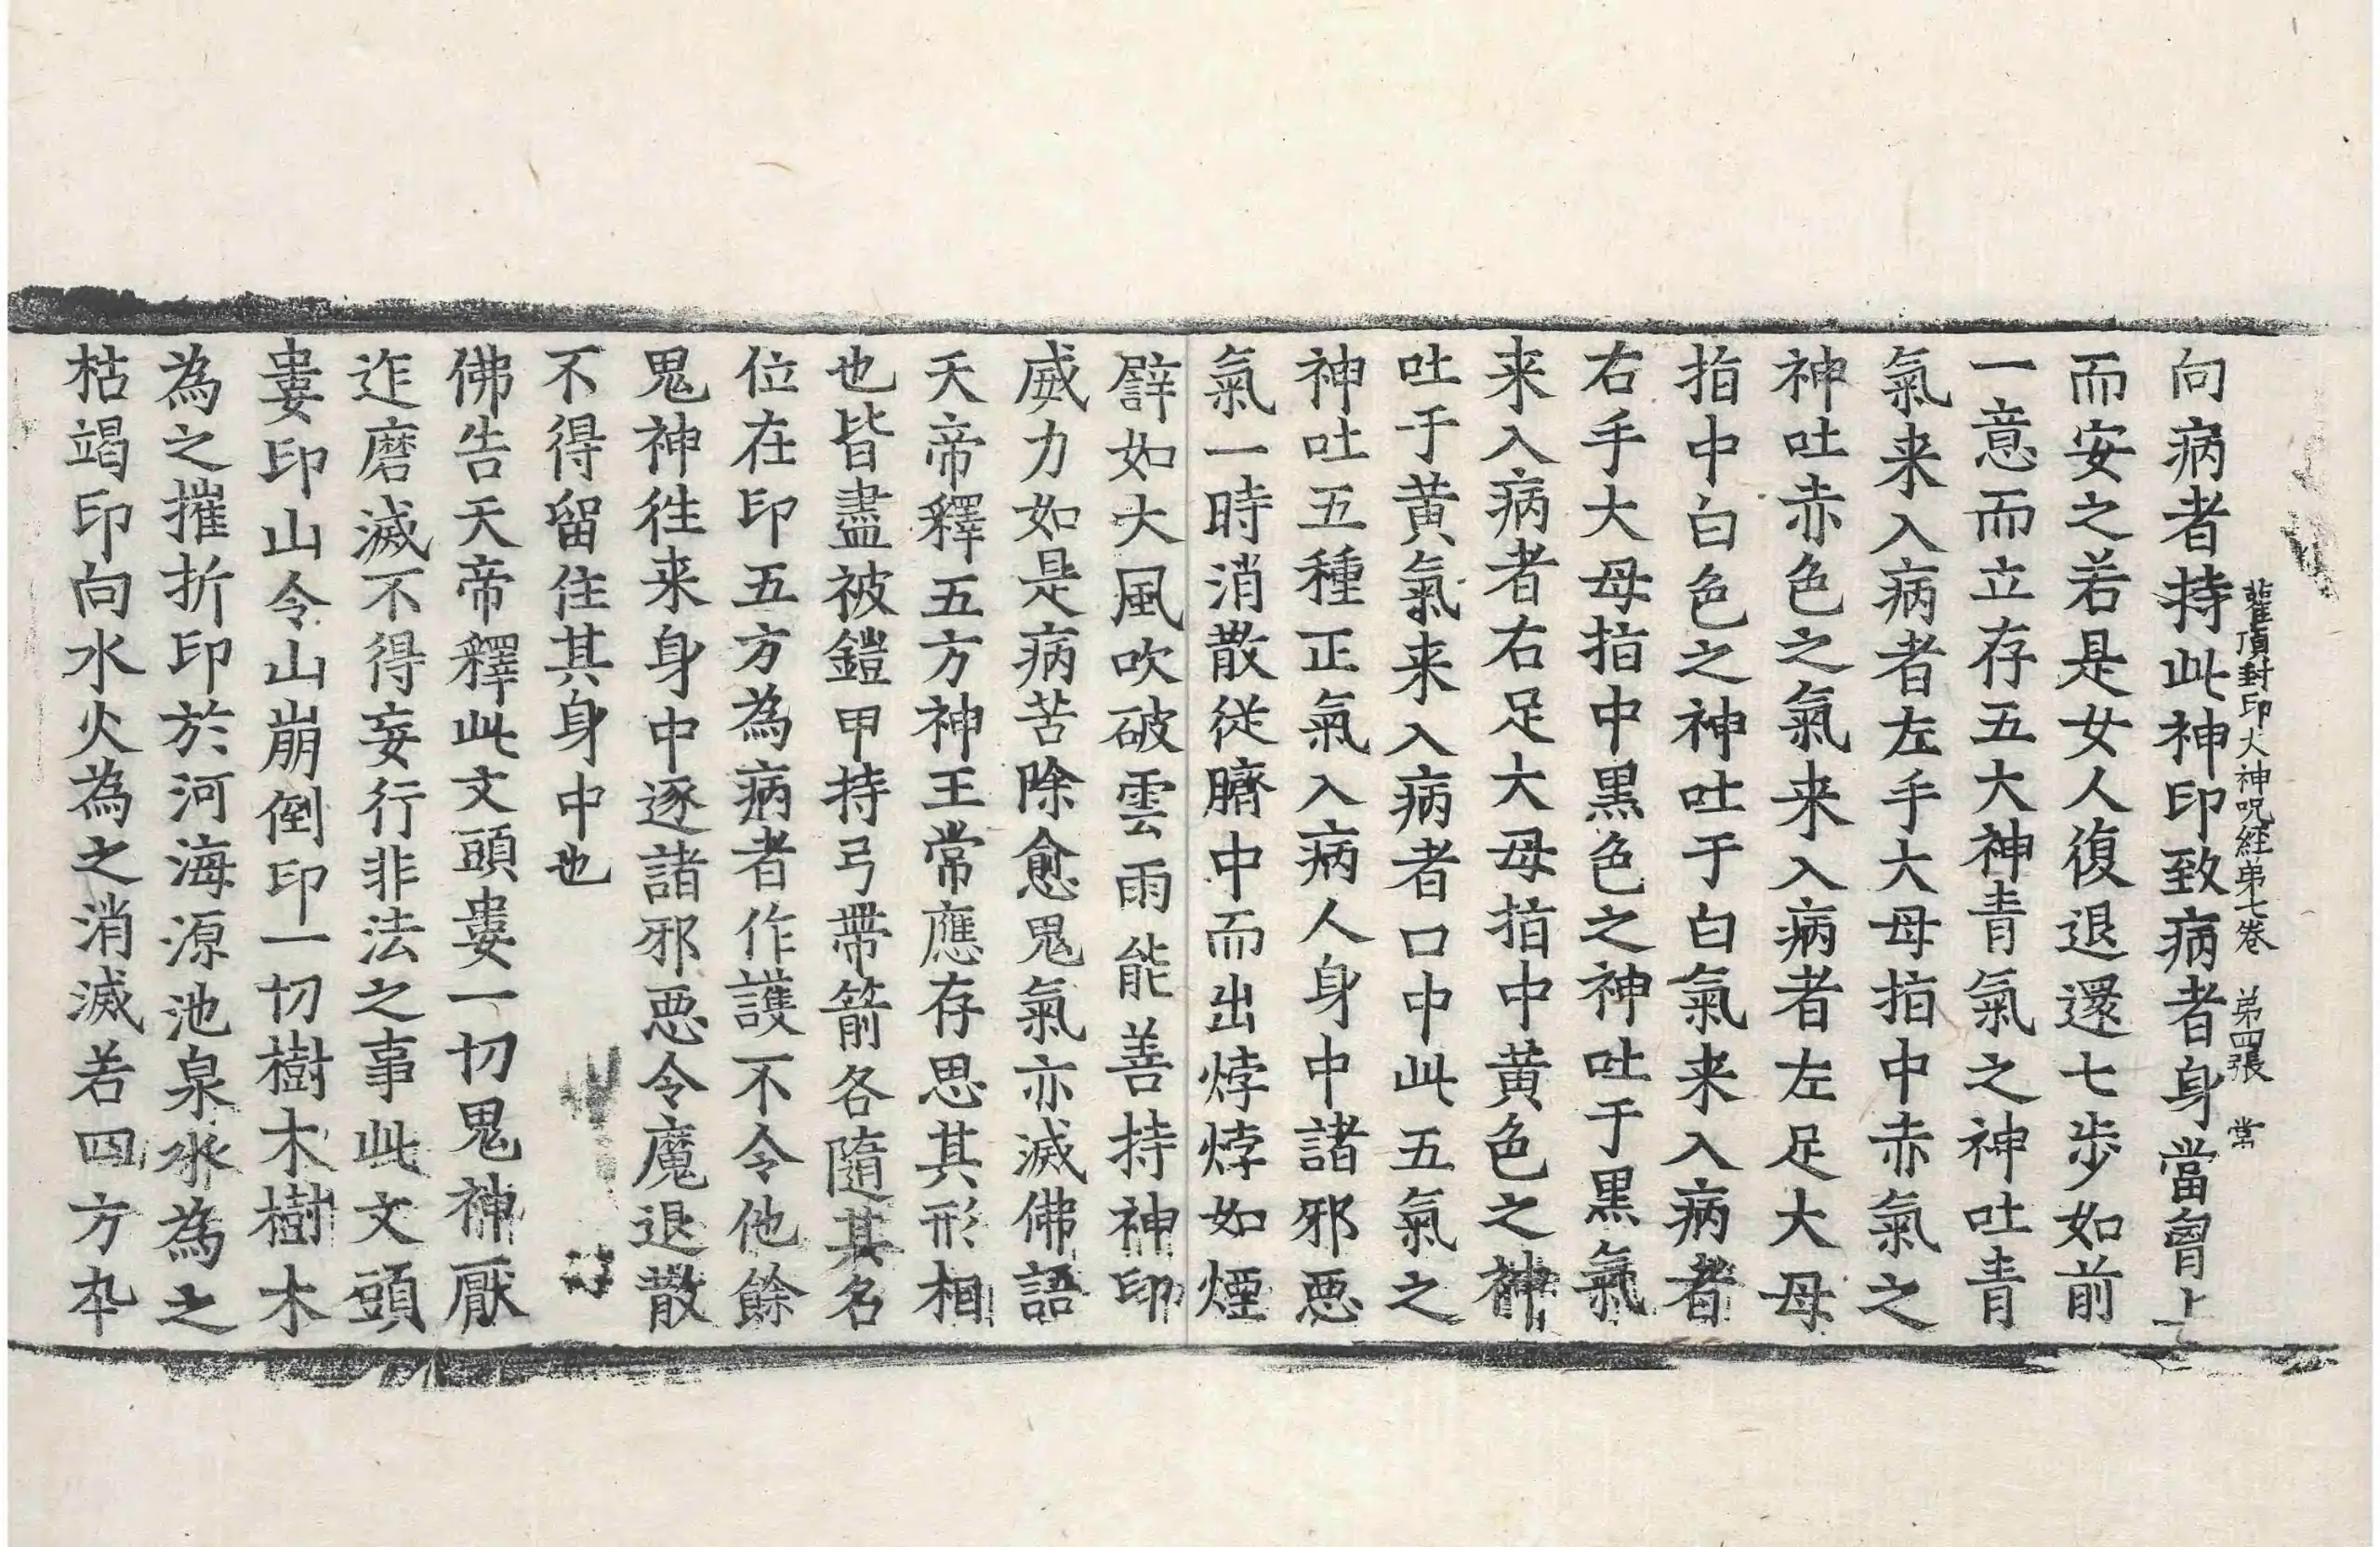 灌頂封印大神呪經第七卷 第四張 常
向病者持此神印致病者身當胷上
而安之若是女人復退還七步如前
一意而立存五大神青氣之神吐青
氣来入病者左手大母指中赤氣之
神吐赤色之氣来入病者左足大母
指中白色之神吐于白氣来入病者
右手大母指中黒色之神吐于黒氣
来入病者右足大母指中黄色之神
吐于黄氣来入病者口中此五氣之
神吐五種正氣入病人身中諸邪惡
氣一時消散從臍中而出㶿㶿如煙
譬如大風吹破雲雨能善持神印
威力如是病苦除愈鬼氣亦滅佛語
天帝釋五方神王常應存思其形相
也皆盡被鎧甲持弓帶箭各隨其名
位在印五方為病者作護不令他餘
鬼神往来身中逐諸邪惡令魔退散
不得留住其身中也
佛告天帝釋此文頭婁一切鬼神厭
迮磨滅不得妄行非法之事此文頭
婁印山令山崩倒印一切樹木樹木
為之摧折印於河海源池泉水為之
枯竭印向水火為之消滅若四方卒